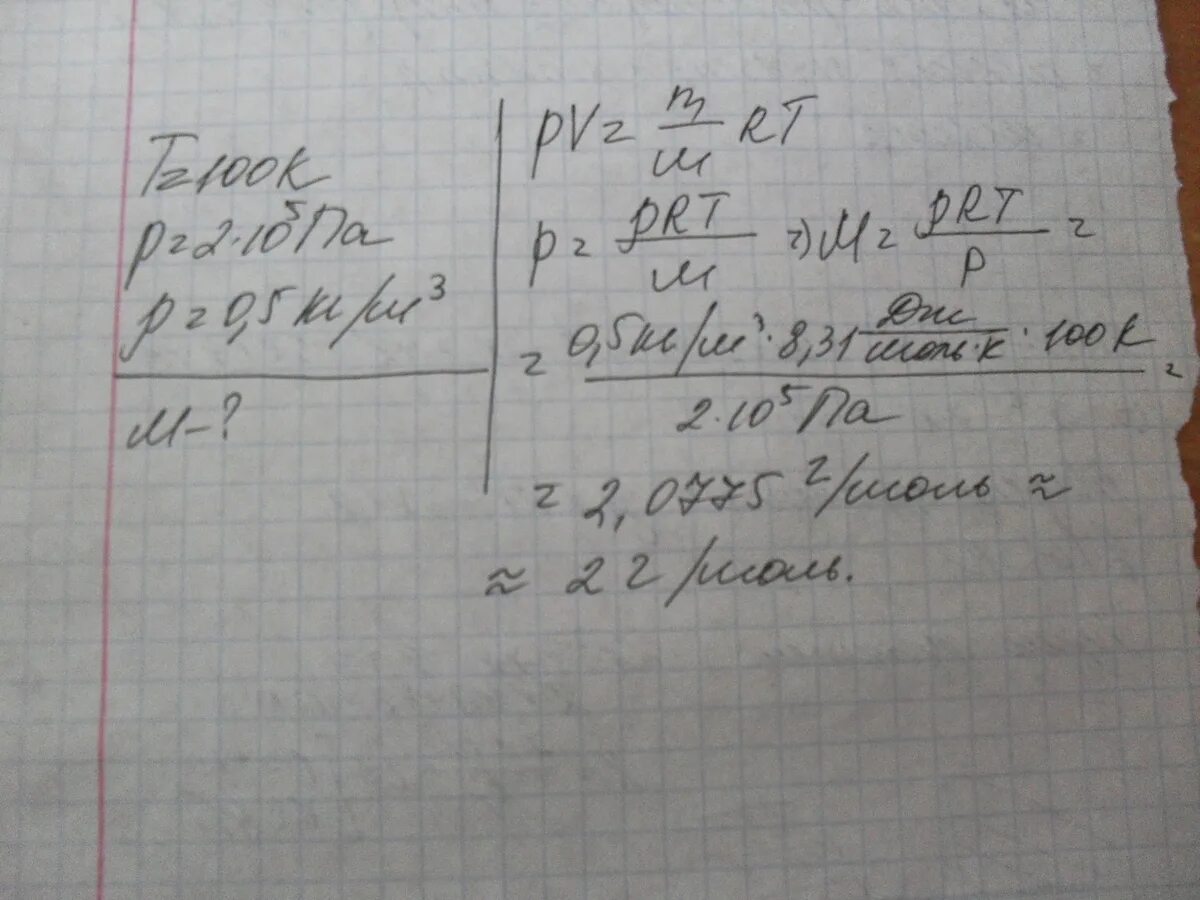 T=100К
p=2·10⁵Па
ρ=0,5кг/м³
М-?
pV= m/М RT
p= ρRT/М ⇒ М= ρRT/p =
= 0,5кг/м³·8,31 Дж/моль·К ·100К / 2·10⁵Па =
= 2,0775 г/моль ≈
≈ 2 г/моль.